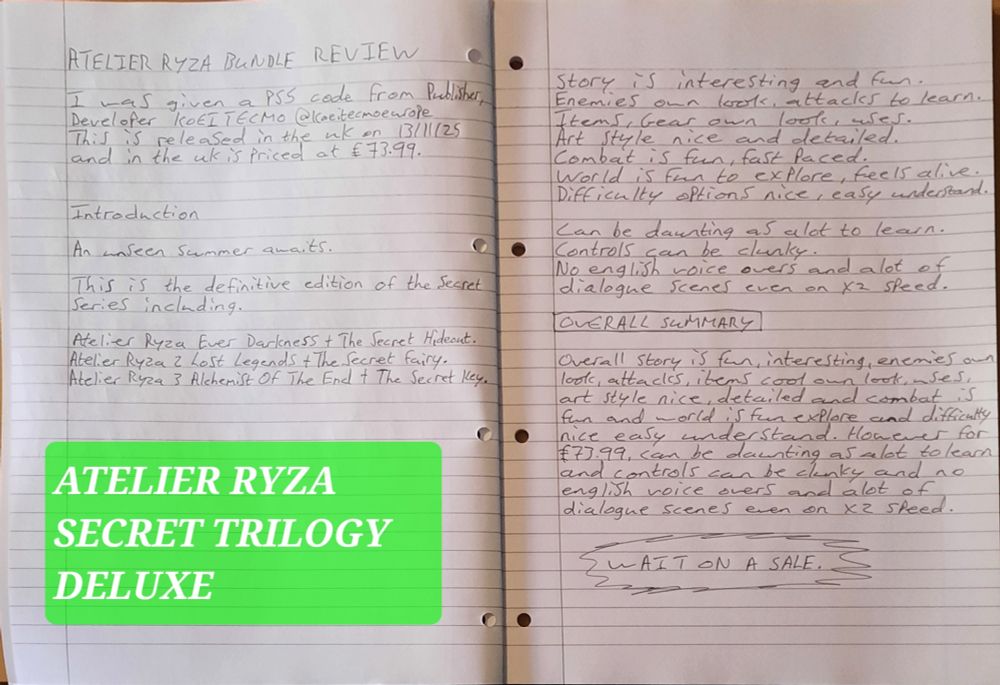 ATELIER RYZA BUNDLE REVIEW
I was given a PS5 code from Publisher,
Developer KOEITECMO @koeitecmoeurope
This is released in the uk on 13/11/25
and in the uk is priced at £73.99.
Introduction
An unseen summer awaits.
This is the definitive edition of the Secret
Series including.
Atelier Ryza Ever Darkness + The Secret Hideout.
Atelier Ryza 2 Lost Legends + The Secret Fairy.
Atelier Ryza 3 Alchemist Of The End + The Secret Key.
ATELIER RYZA
SECRET TRILOGY
DELUXE
Story is interesting and fun.
Enemies own look, attacks to learn.
Items, Gear own look, uses.
Art style nice and detailed.
Combat is fun, fast paced.
World is fun to explore, feels alive.
Difficulty options nice, easy understand.
Can be daunting as alot to learn.
Controls can be clunky.
No english voice overs and alot of
dialogue scenes even on x2 speed.
OVERALL SUMMARY
Overall story is fun, interesting, enemies own
look, attacks, items cool own look, uses,
art style nice, detailed and combat is
fun and world is fun explore and difficulty
nice easy understand. However for
£73.99, can be daunting as alot to learn
and controls can be clunky and no
english voice overs and alot of
dialogue scenes even on x2 speed.
WAIT ON A SALE.